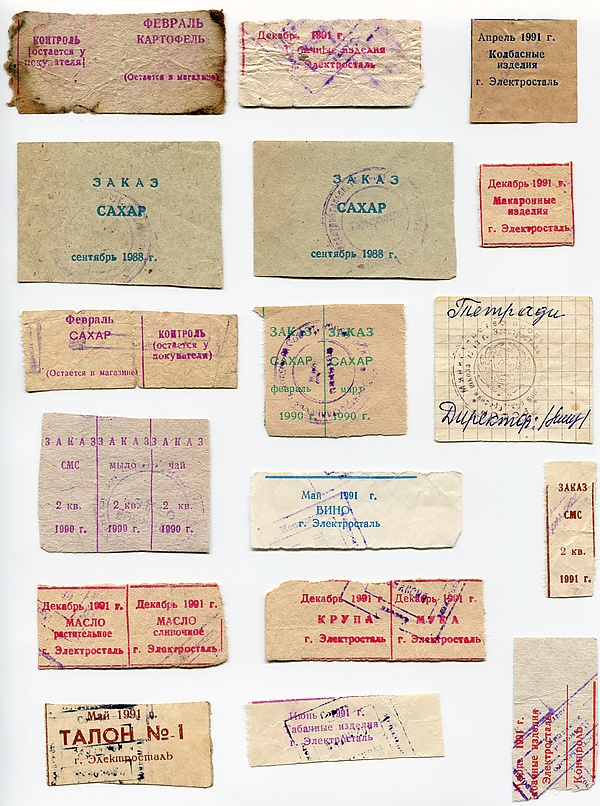 ФЕВРАЛЬ
КАРТОФЕЛЬ
(Остается в магазине)
КОНТРОЛЬ
(остается у
покупателя)
Декабрь 1991 г.
изделия
Электросталь
Апрель 1991 г.
Колбасные
изделия
г. Электросталь
ЗАКАЗ
САХАР
сентябрь 1988 г.
ЗАКАЗ
САХАР
сентябрь 1988 г.
Декабрь 1991 г.
Макаронные
изделия
г. Электросталь
Февраль
САХАР
(Остается в магазине)
КОНТРОЛЬ
(остается у
покупателя)
ЗАКАЗ ЗАКАЗ
САХАР САХАР
февраль март
1990 г. 1990 г.
Тетради
Директор:
ЗАКАЗ ЗАКАЗ ЗАКАЗ
СМС мыло чай
2 кв. 2 кв. 2 кв.
1990 г. 1990 г. 1990 г.
Май 1991 г.
ВИНО
г. Электросталь
ЗАКАЗ
СМС
2 кв.
1991 г.
Декабрь 1991 г.
МАСЛО
растительное
г. Электросталь
Декабрь 1991 г.
МАСЛО
сливочное
г. Электросталь
Декабрь 1991 г.
КРУПА
г. Электросталь
Декабрь 1991 г.
МУКА
г. Электросталь
Май 1991 г.
ТАЛОН № 1
г. Электросталь
Июнь 1991 г.
абачные изделия
г. Электросталь
1991 г.
абачные изделия
Электросталь
Контроль